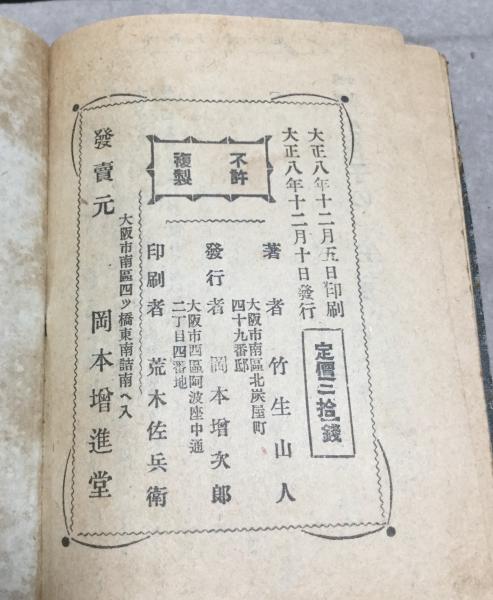 大正八年十二月五日印刷
大正八年十二月十日發行
定價二拾錢
不許
複製
著者 竹生山人
大阪市南區北炭屋町
四十九番邸
發行者 岡本增次郎
大阪市西區阿波座中通
二丁目四番地
印刷者 荒木佐兵衛
大阪市南區四ツ橋東南詰南ヘ入
發賣元 岡本增進堂